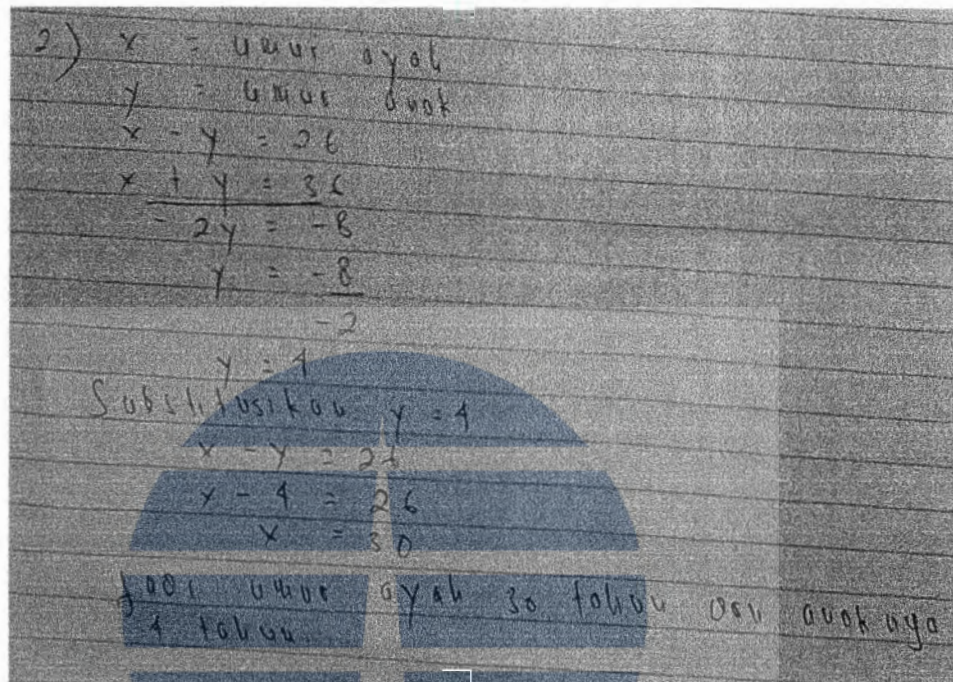 2) x = umur ayah
y = umur anak
x - y = 26
x + y = 36
- 2y = -8
y = -8
-2
y = 4
Substitusikan y = 4
x - y = 26
x - 4 = 26
x = 30
Jadi umur ayah 30 tahun dan anaknya
4 tahun.